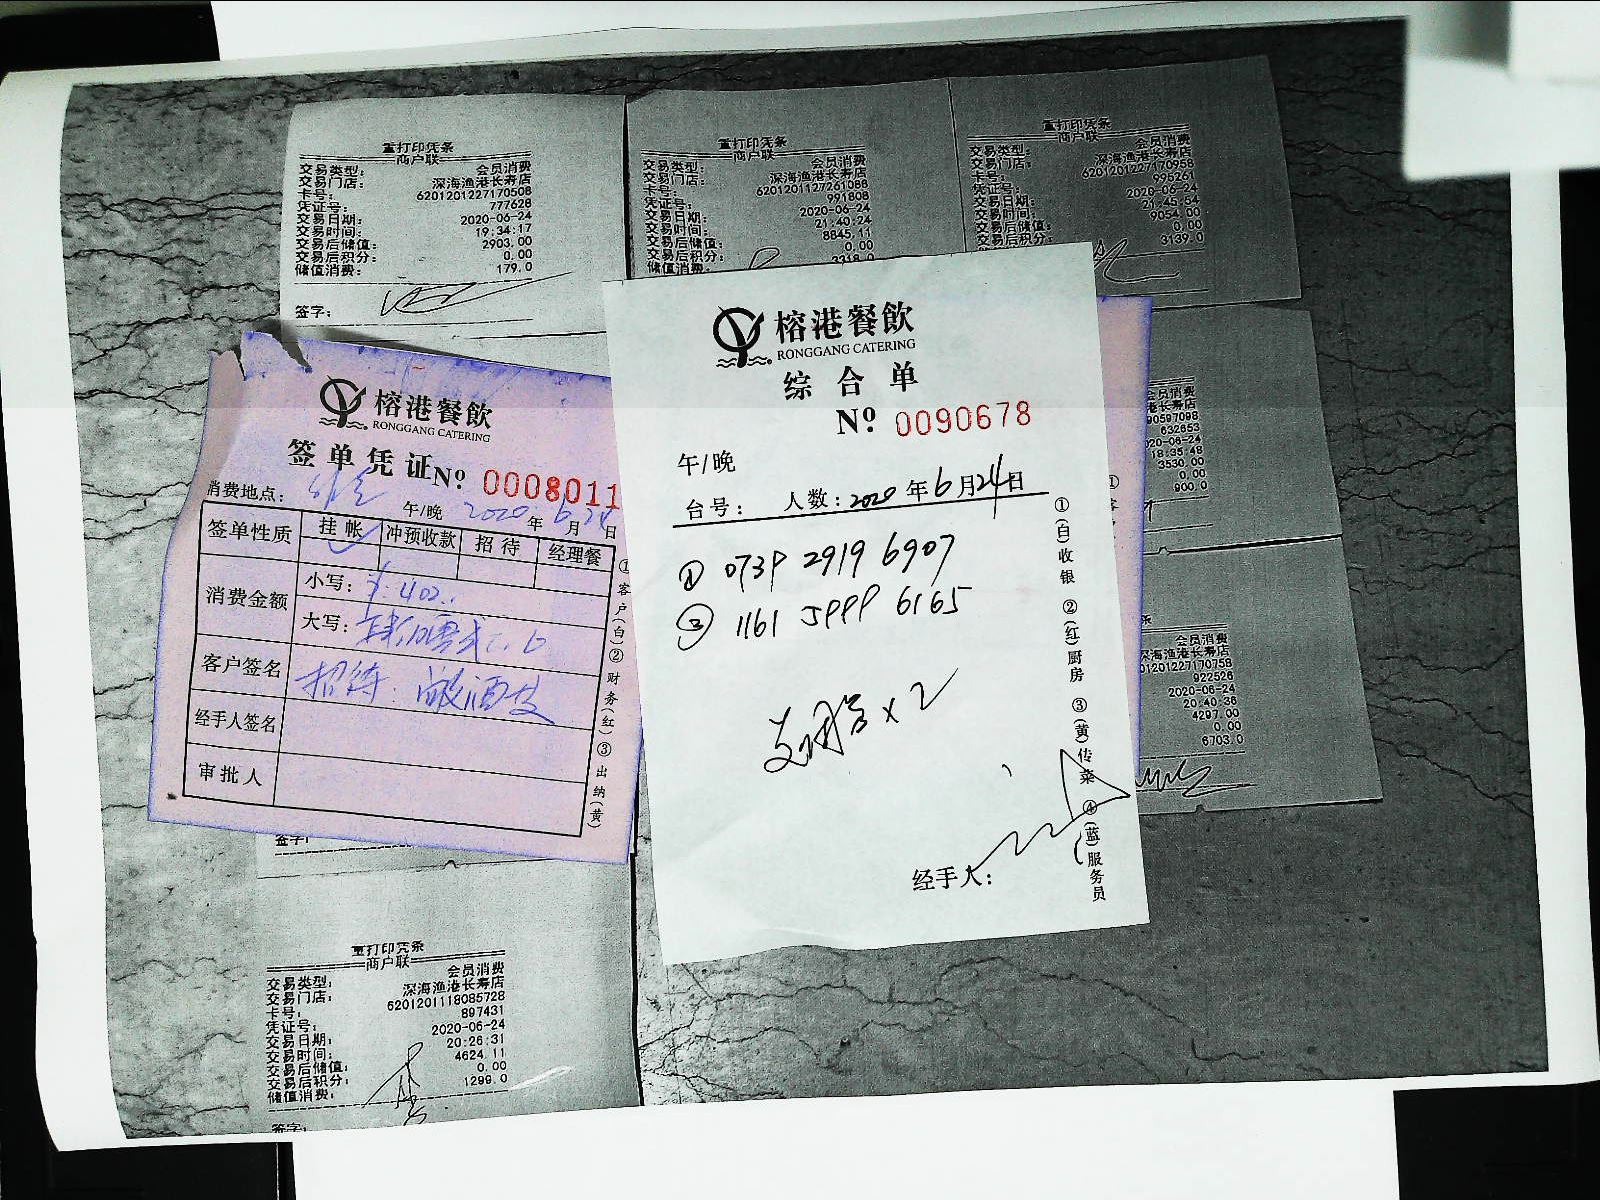 重打印凭条
商户联
交易类型: 会员消费
交易门店: 深海渔港长寿店
卡号: 6201201227170508
凭证号: 777628
交易日期: 2020-06-24
交易时间: 19:34:17
交易后储值: 2903.00
交易后积分: 0.00
储值消费: 179.0
签字:
重打印凭条
商户联
交易类型: 会员消费
交易门店: 深海渔港长寿店
卡号: 6201201127261088
凭证号: 991808
交易日期: 2020-06-24
交易时间: 21:40:24
交易后储值: 8845.11
交易后积分: 0.00
储值消费: 3318.0
重打印凭条
商户联
交易类型: 会员消费
交易门店: 深海渔港长寿店
卡号: 6201201227170958
凭证号: 996261
交易日期: 2020-06-24
交易时间: 21:45:54
交易后储值: 9054.00
交易后积分: 0.00
3139.0
榕港餐飲
RONGGANG CATERING
签单凭证 Nº 0008011
消费地点:
午/晚 2020 年 6 月 24 日
签单性质 挂帐 冲预收款 招待 经理餐
消费金额 小写: ¥402.
大写:
客户签名 招待.
经手人签名
审批人
①客户(白)②财务(红)③出纳(黄)
签字:
榕港餐飲
RONGGANG CATERING
综合单
Nº 0090678
午/晚
台号: 人数: 2020 年 6 月 24 日
① 0739 2919 6907
② 1161 5999 6165
x2
经手人:
①(白)收银 ②(红)厨房 ③(黄)传菜 ④(蓝)服务员
会员消费
港长寿店
90597098
632653
20-06-24
18:35:48
3530.00
0.00
900.0
会员消费
深海渔港长寿店
01201227170758
922526
2020-06-24
20:40:36
4297.00
0.00
6703.0
重打印凭条
商户联
交易类型: 会员消费
交易门店: 深海渔港长寿店
卡号: 6201201118085728
凭证号: 897431
交易日期: 2020-06-24
交易时间: 20:26:31
交易后储值: 4624.11
交易后积分: 0.00
储值消费: 1299.0
签字: